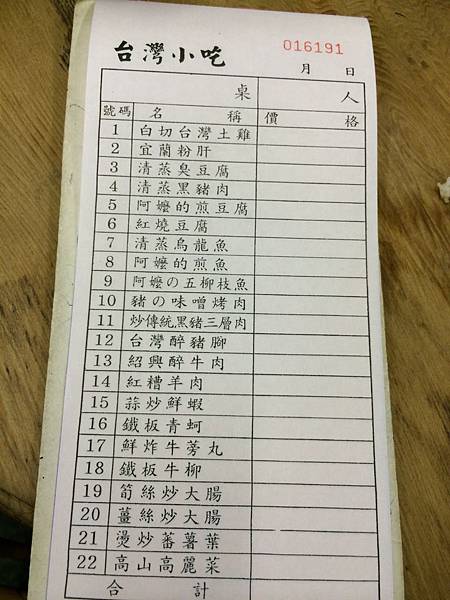 台灣小吃 016191
月 日
桌 人
號碼 名稱 價格
1 白切台灣土雞
2 宜蘭粉肝
3 清蒸臭豆腐
4 清蒸黑豬肉
5 阿嬤的煎豆腐
6 紅燒豆腐
7 清蒸烏龍魚
8 阿嬤的煎魚
9 阿嬤の五柳枝魚
10 豬の味噌烤肉
11 炒傳統黑豬三層肉
12 台灣醉豬腳
13 紹興醉牛肉
14 紅糟羊肉
15 蒜炒鮮蝦
16 鐵板青蚵
17 鮮炸牛蒡丸
18 鐵板牛柳
19 筍絲炒大腸
20 薑絲炒大腸
21 燙炒蕃薯葉
22 高山高麗菜
合計